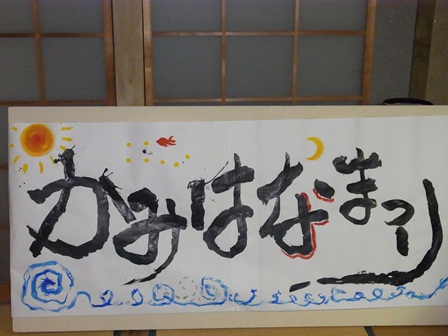 かみはなまつり